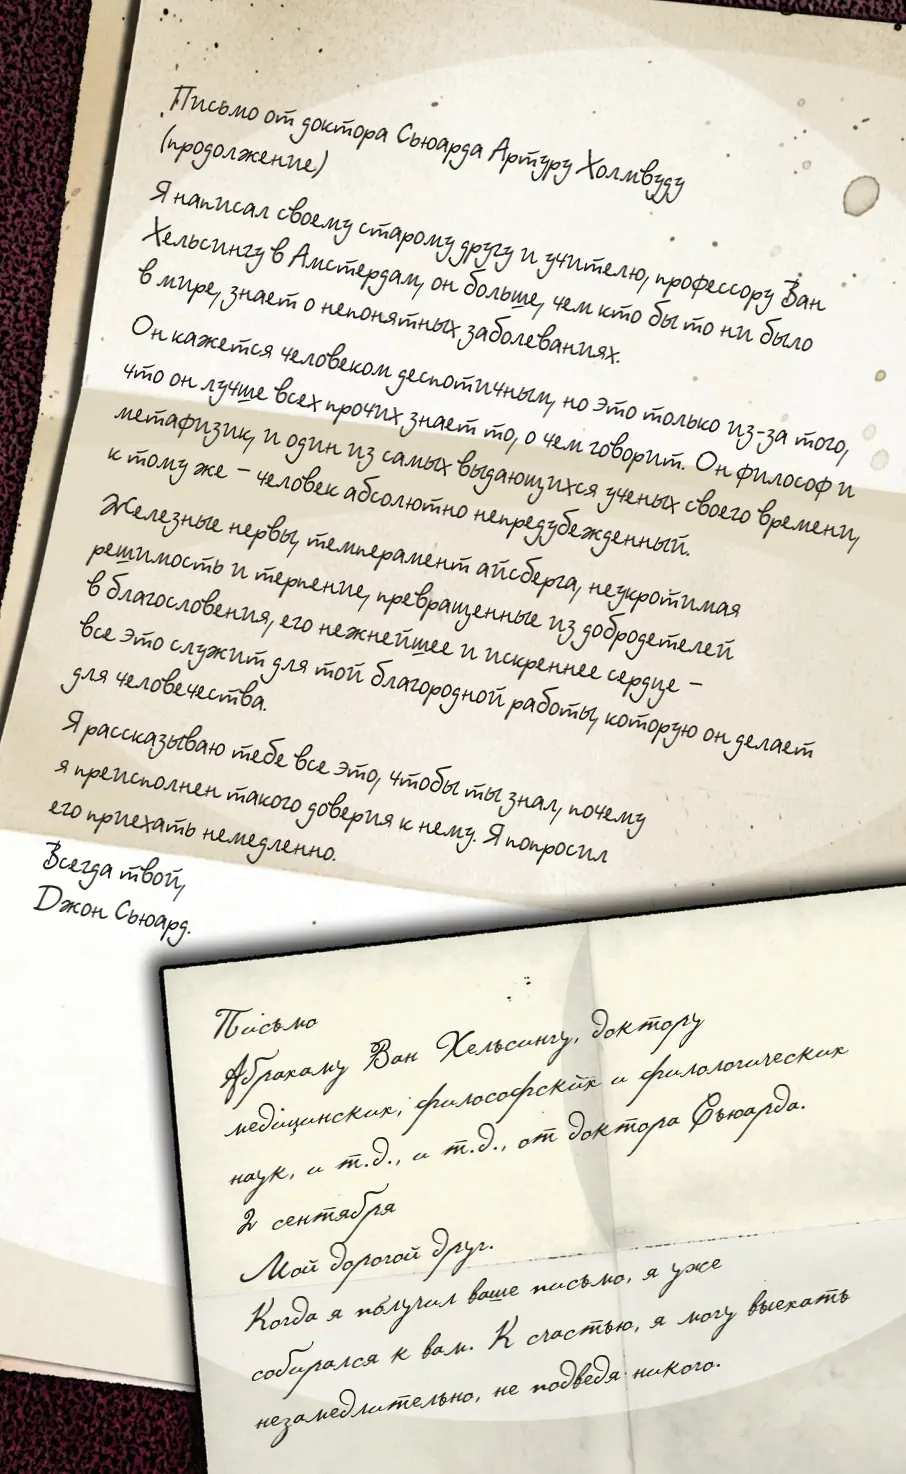 Письмо от доктора Сьюарда Артуру Холмвуду
(продолжение)
Я написал своему старому другу и учителю, профессору Ван
Хельсингу в Амстердам, он больше, чем кто бы то ни было
в мире, знает о непонятных заболеваниях.
Он кажется человеком деспотичным, но это только из-за того,
что он лучше всех прочих знает то, о чем говорит. Он философ и
метафизик, и один из самых выдающихся ученых своего времени,
к тому же – человек абсолютно непредубежденный.
Железные нервы, темперамент айсберга, неукротимая
решимость и терпение, превращенные из добродетелей
в благословения, его нежнейшее и искреннее сердце –
все это служит для той благородной работы, которую он делает
для человечества.
Я рассказываю тебе все это, чтобы ты знал, почему
я преисполнен такого доверия к нему. Я попросил
его приехать немедленно.
Всегда твой,
Джон Сьюард.
Письмо
Абрахаму Ван Хельсингу, доктору
медицинских, философских и филологических
наук, и т.д., и т.д., от доктора Сьюарда.
2 сентября
Мой дорогой друг.
Когда я получил ваше письмо, я уже
собирался к вам. К счастью, я могу выехать
незамедлительно, не подведя никого.